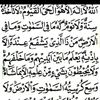 الله لا إله إلا هو الحي القيوم لا تأخذه
سنة ولا نوم له ما في السموت وما في
الأرض من ذا الذي يشفع عنده إلا
بإذنه يعلم ما بين أيديهم وما خلفهم
ولا يحيطون بشيء من علمه إلا بما
شاء وسع كرسيه السموت والأرض